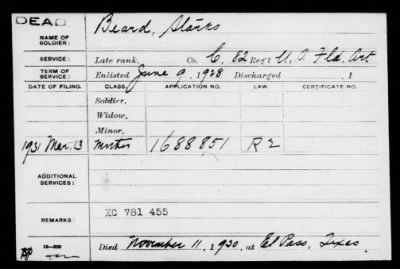 DEAD
NAME OF SOLDIER: Beard, Starks
SERVICE: Late rank, Co. C, 82 Reg't U.S. Fld. Art
TERM OF SERVICE: Enlisted June 9, 1928 Discharged , 1
DATE OF FILING. CLASS. APPLICATION NO. LAW. CERTIFICATE NO.
Soldier,
Widow,
Minor,
1931 Mar. 13 Mother 1688851 R2
ADDITIONAL SERVICES:
REMARKS: XC 781 455
Died November 11, 1930, at El Paso, Texas